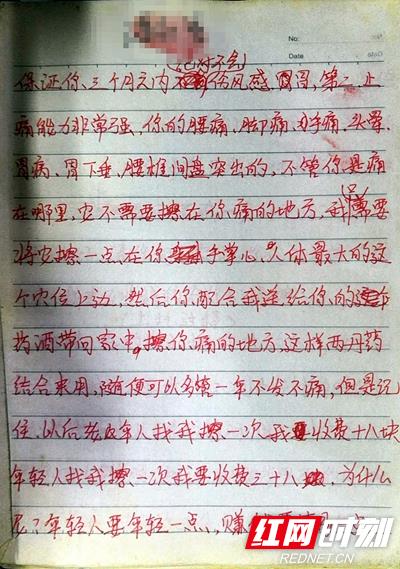 No:
Date
(绝对不会)
保证你、三个月内伤风感冒, 第二止
痛能力非常强、你的腰痛、脚痛、手痛、头晕、
胃病、胃下垂、腰椎间盘突出的、不管你是痛
在哪里, 它不需要擦在你痛的地方、我只需要
将它擦一点、在你手掌心、人体最大的这
个穴位上边, 然后你配合我送给你的这
药酒带回家中, 擦你痛的地方, 这样两丹药
结合来用, 随便可以多管一年不发不痛, 但是记
住、以后老年人找我擦一次、我要收费十八块
年轻人找我擦一次我要收费三十八块, 为什么
呢? 年轻人要年轻一点,, 赚
红网时刻
REDNET.CN